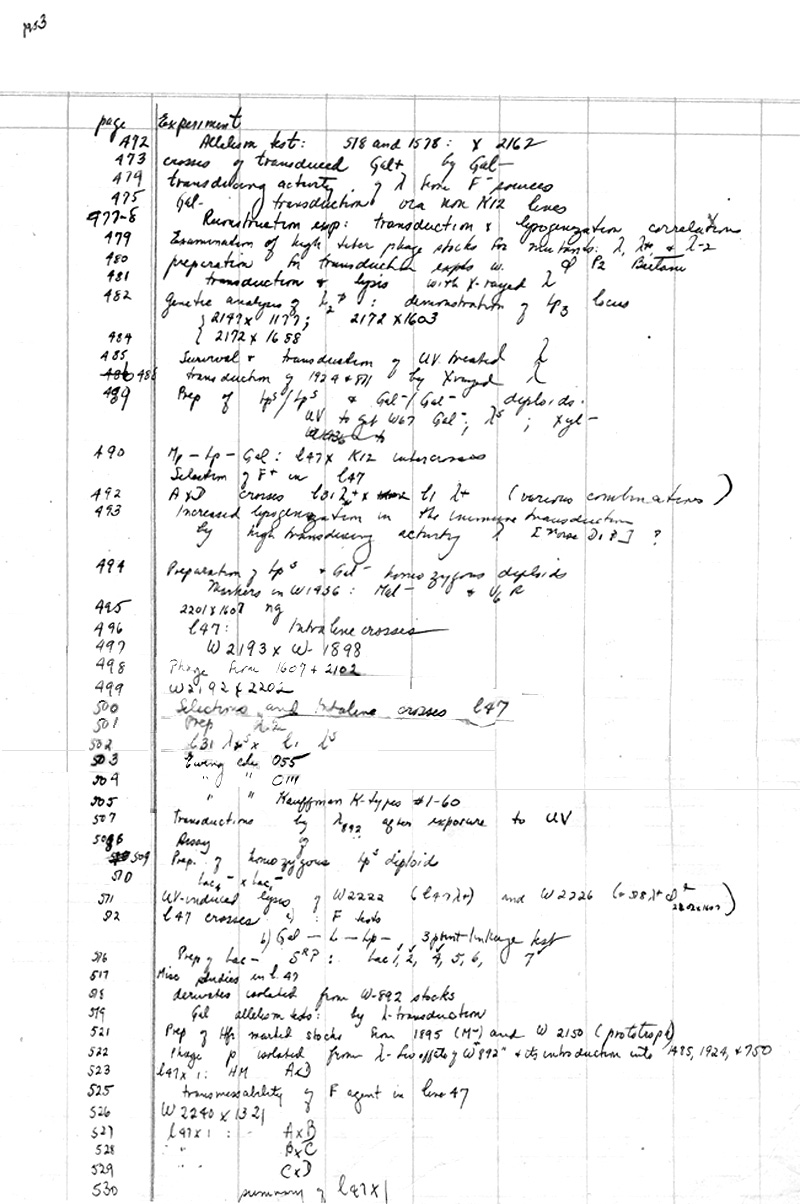 1953
page Experiment
472 Allelism test: 518 and 1578: x 2162
473 crosses of transduced Gal+ by Gal-
474 transducing activity of λ from F- sources
475 Gal- transductions via non K12 lines
477-8 Reconstruction exp: transduction & lysogenization correlation
479 Examination of high titer phage stocks for mutants: λ, & λ-2
480 preparation for transduction expts w. P2 Bertani
481 transduction & lysis with X-rayed λ
482 Genetic analysis of λ2: demonstration of Lp3 locus
{ 2147 x 1177; 2172 x 1603
484 { 2172 x 1688
485 Survival & transduction of UV treated λ
488 transduction of 1924 & 811 by Xrayed λ
489 Prep of Lps/Lps & Gal-/Gal- diploids.
UV to get W67 Gal-; λs; Xyl-
490 Mp-Lp-Gal: l47 x K12 intercrosses
Selection of F+ in l47
492 AxD crosses x l1 λ+ (various combinations)
493 Increased lysogenization in the immune transduction
by high transducing activity λ ?
494 Preparation of Lps & Gal- homozygous diploids
Markers in W1436: Mal- & V6R
495 2201 x 1607 ng
496 l47: Intraline crosses
497 W2193 x W-1898
498 Phage from 1607 + 2102
499 W2192 x 2202
500 Selections and Intraline crosses l47
501 Prep
502 l31 x l1 λs
503 Ewing cult 055
504 " " 0111
505 " " Kauffman K-types #1-60
507 Transductions by λ892 after exposure to UV
508 Assay of
509 Prep. of homozygous Lps diploid
510 Lac4- x Lac1-
511 UV-induced lysis of W2222 (l47λ+) and W2226
512 l47 crosses a): F tests
b) Gal-L-Lp-, 3 point linkage test
516 Prep of Lac- SRP: Lac1, 2, 4, 5, 6, 7
517 Misc studies in l.47
518 derivates isolated from W-892 stocks
519 Gal allelism tests: by λ-transduction
521 Prep of Hfr marked stocks from 1895 (M-) and W2150 (prototroph)
522 Phage p isolated from λ- of W892 & its introduction into 1485, 1924, & 750
523 l47 x 1: HM AxD
525 transmissability of F agent in line 47
526 W2240 x 1321
527 l47 x 1: - AxB
528 " " BxC
529 " " CxD
530 summary of l47x1